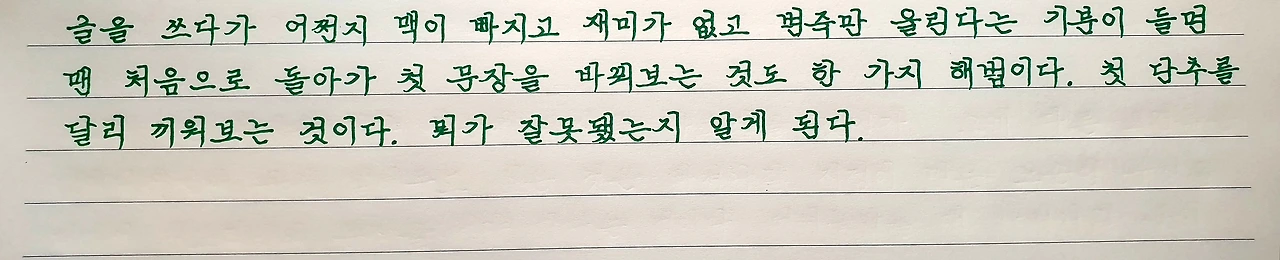 글을 쓰다가 어쩐지 맥이 빠지고 재미가 없고 변죽만 울린다는 기분이 들면
맨 처음으로 돌아가 첫 문장을 바꿔보는 것도 한 가지 해법이다. 첫 단추를
달리 끼워보는 것이다. 뭐가 잘못됐는지 알게 된다.